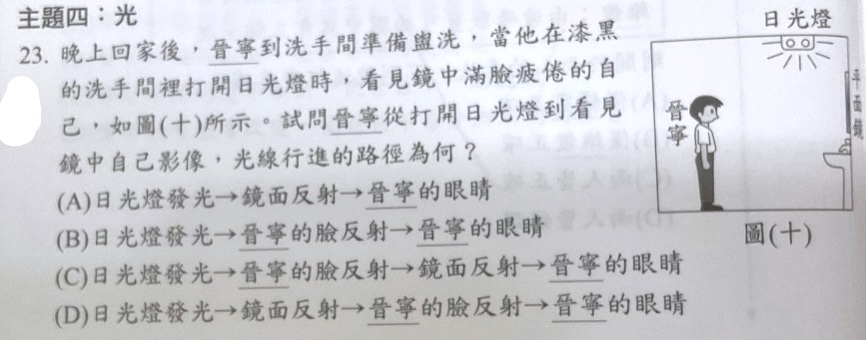 主題四：光
23. 晚上回家後，晉寧到洗手間準備盥洗，當他在漆黑
的洗手間裡打開日光燈時，看見鏡中滿臉疲倦的自
己，如圖(十)所示。試問晉寧從打開日光燈到看見
鏡中自己影像，光線行進的路徑為何？
(A)日光燈發光→鏡面反射→晉寧的眼睛
(B)日光燈發光→晉寧的臉反射→晉寧的眼睛
(C)日光燈發光→晉寧的臉反射→鏡面反射→晉寧的眼睛
(D)日光燈發光→鏡面反射→晉寧的臉反射→晉寧的眼睛
日光燈
晉寧
平面鏡
圖(十)